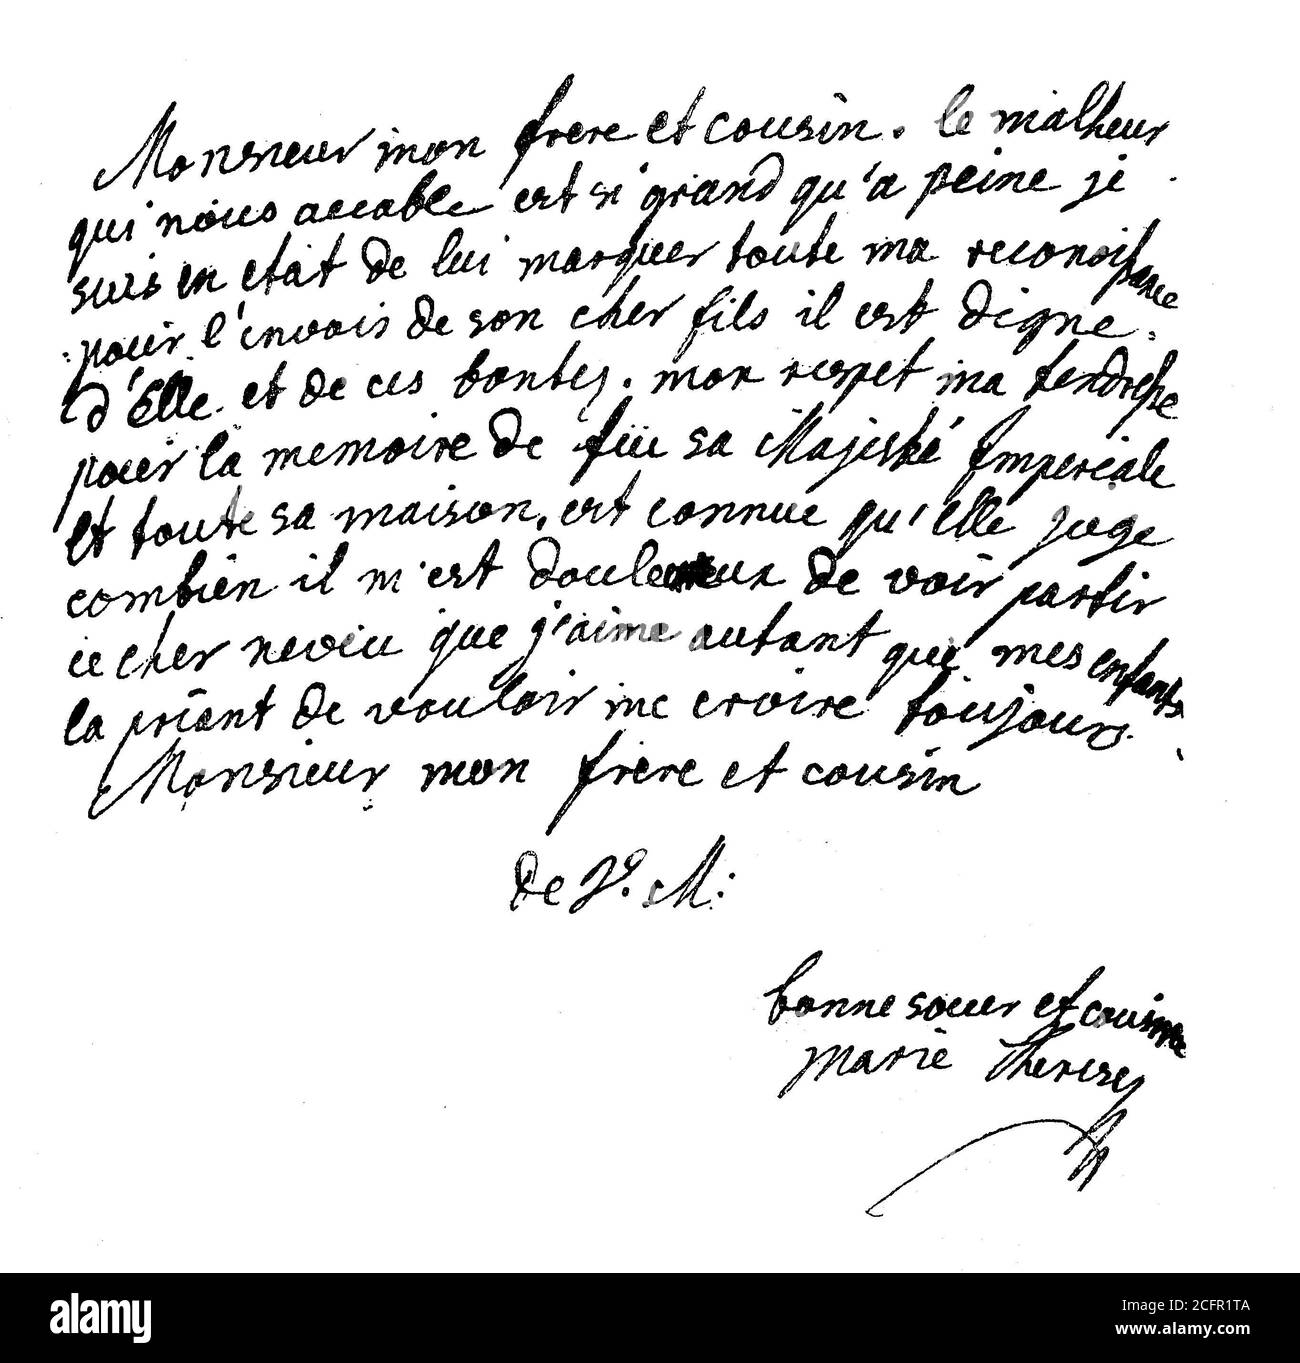 Monsieur mon frere et cousin. le malheur
qui nous accable est si grand qu'a peine je
suis en etat de lui marquer toute ma reconoissance
pour l'envois de son cher fils il est digne
d'Elle et de ces bontes. mon respet ma tendresse
pour la memoire de feu sa Majesté Imperiale
et toute sa maison, est connue qu'elle juge
combien il m'est douleureux de voir partir
ce cher neveu que j'aime autant que mes enfants
la priant de vouloir me croire toujours
Monsieur mon frere et cousin
de V. M:
bonne soeur et cousine
Marie Therese
alamy
Image ID: 2CFR1TA
www.alamy.com